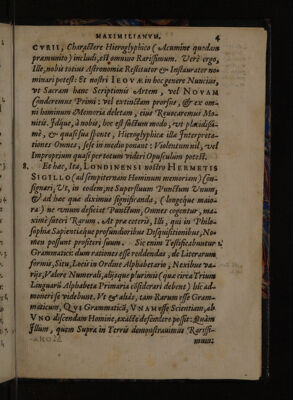 MAXIMILIANVM. 4
CVRII, Charactere Hieroglyphico (Acumine quodam
præmunito) includi, est omnium Rarissimum. Verè ergo,
Ille, nobis totius Astronomiæ Restitutor & Instaurator no-
minari potest: Et nostri IEOVÆ in hoc genere Nuncius,
vt Sacram hanc Scriptionis Artem, vel NOVAM
Conderemus Primi: vel extinctam prorsus, & ex om-
ni hominum Memoria deletam, eius Reuocaremus Mo-
nitis. Idque, à nobis, hoc est factum modo, vt placidissi-
mè, & quasi sua sponte, Hieroglyphicæ illæ Interpreta-
tiones Omnes, sese in medio ponant: Violentum nil, vel
Improprium quasi per totum videri Opusculum potest.
8. Et hæc, Ita, LONDINENSI nostro HERMETIS
SIGILLO (ad sempiternam Hominum memoriam) Con-
signari, Vt, in eodem, ne Superfluum Punctum Vnum,
& ad hæc quæ diximus significanda, (longèque maio-
ra) ne vnum deficiat Punctum, Omnes cogentur, ma-
ximè fateri Rarum. At præ cæteris, Illi, qui in Philo-
sophiæ Sapientiæque profundioribus Disquisitionibus, No-
men possunt profiteri suum. Sic enim Testificabuntur
Grammatici: dum rationes esse reddendas, de Literarum
formis, Situ, Locis in Ordine Alphabetario, Nexibus va-
rijs, Valore Numerali, alijsque plurimis (quæ circa Trium
Linguarũ Alphabeta Primaria cõsiderari debent) hîc ad-
moneri se videbunt. Vt & aliàs, tam Rarum esse Gram-
maticum, QVI Grammaticâ, VNAM esse Scientiam, ab
VNO discendam Homine, exactè defendere possit: Quàm
Illum, quem Supra in Terris demonstrauimus Rarissi-
mum: